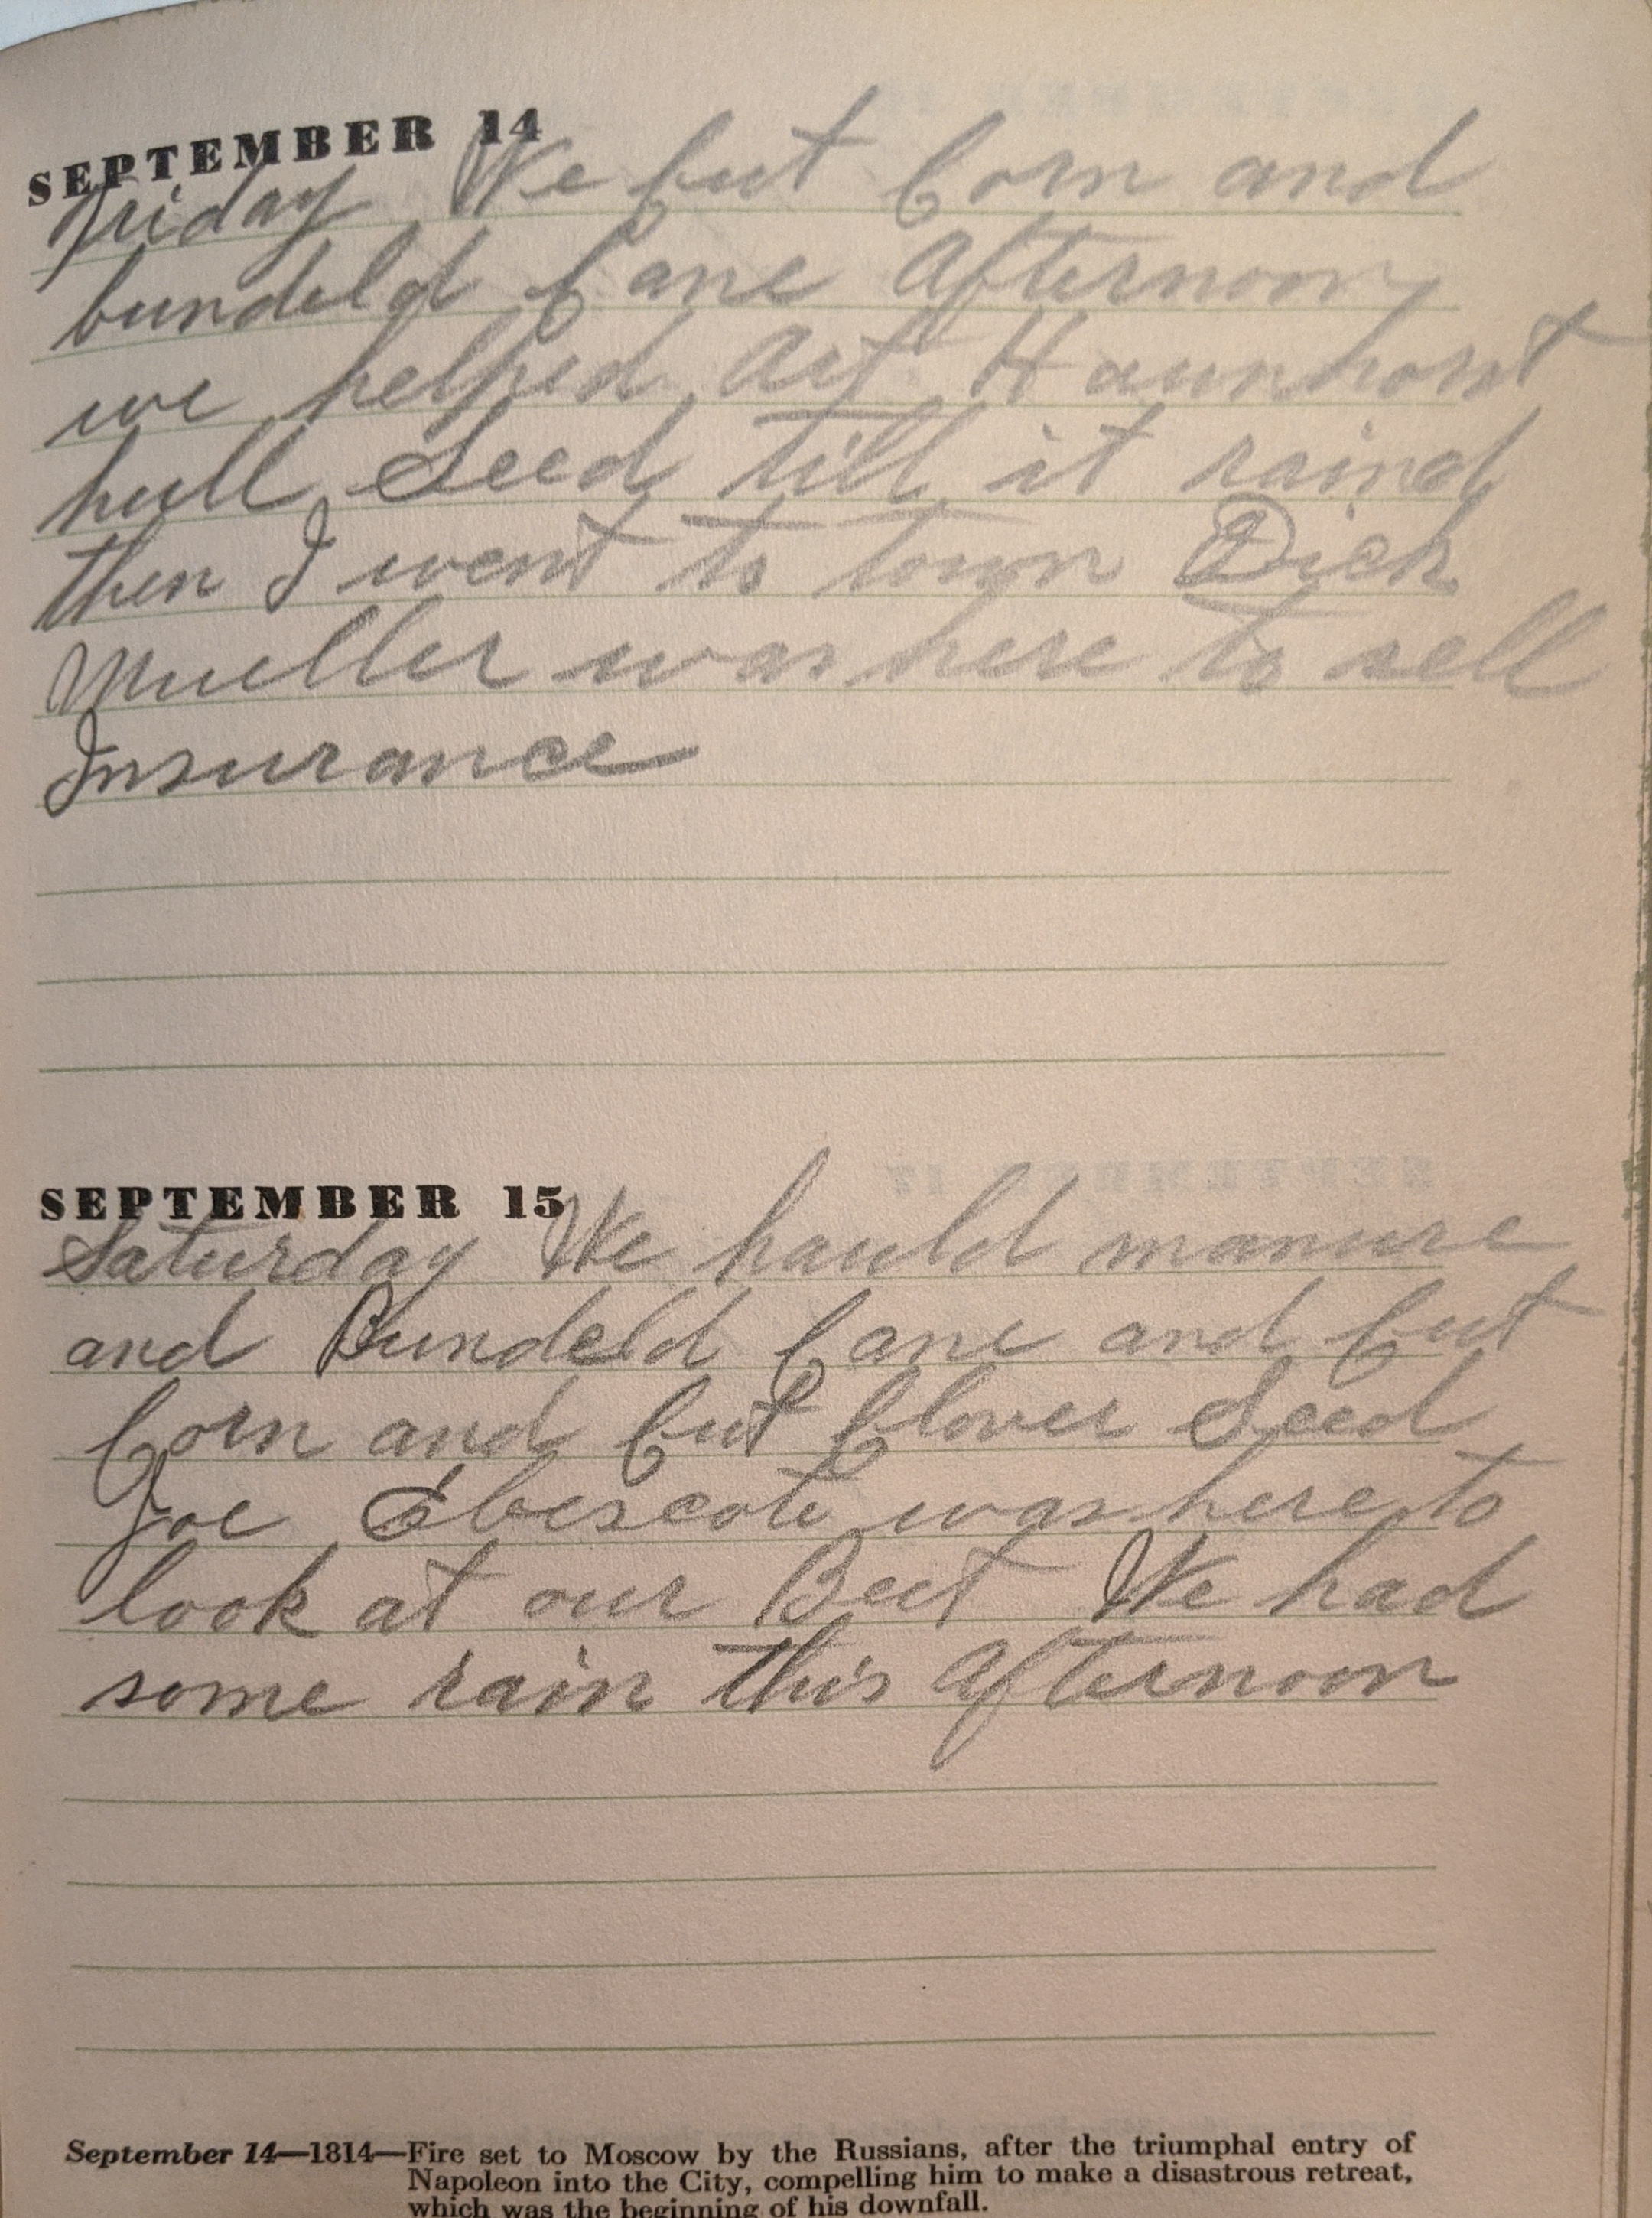 SEPTEMBER 14
Friday We Cut Corn and
bundeld Cane Afternoon
we helped Art Haunhorst
hull Seed till it raind
then I went to town Dick
Mueller was here to sell
Insurance
SEPTEMBER 15
Saturday We hauld manure
and Bundeld Cane and Cut
Corn and Cut Clover Seed
Joe was here to
look at our Beet We had
some rain this Afternoon
September 14—1814—Fire set to Moscow by the Russians, after the triumphal entry of
Napoleon into the City, compelling him to make a disastrous retreat,
which was the beginning of his downfall.